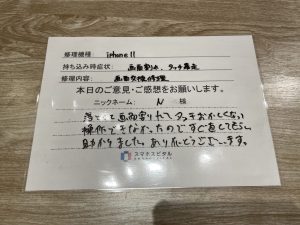 修理機種: iphone 11
持ち込み時症状: 画面割れ、タッチ暴走
修理内容: 画面交換修理
本日のご意見・ご感想をお願いします。
ニックネーム: N 様
落として画面割れてタッチおかしくない
操作できなかったのですぐ直してもらい
助かりました。ありがとうございます。
スマホスピタル